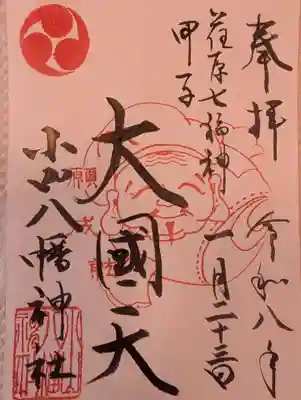 奉拝
令和八年
荏原七福神
一月二十三日
甲子
大國天
小山八幡神社